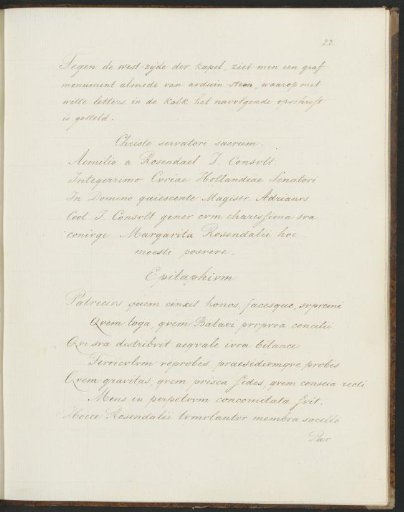 22
Tegen de west-zyde der kapel, ziet men een graf
monument almede van arduin steen, waarop met
witte letters in de kalk het navolgende opschrift
is gesteld.
Christo servatori sacrum.
Aemilio a Rosendael J. Consvlt
Integerrimo Cvriae Hollandiae Senatori
In Domino quiescente Magistr. Adrianvs
Cool J. Consvlt gener cvm charissima sva
conivge Margarita Rosendalii hoc
moeste posvere.
Epitaphivm
Patricivs qvem cinxit honos, jacesque, svpremi
Qvem toga qvem Batavi propria concilii
Qvi sva distribvit aeqvale ivra bilance
Terricvlvm reprobis praesidivmqve probis
Qvem gravitas qvem prisca fides qvem conscia recti
Mens in perpetvvm concomitata fvit.
Hocce Rosendalii tvmvlantvr membra sacello
Par